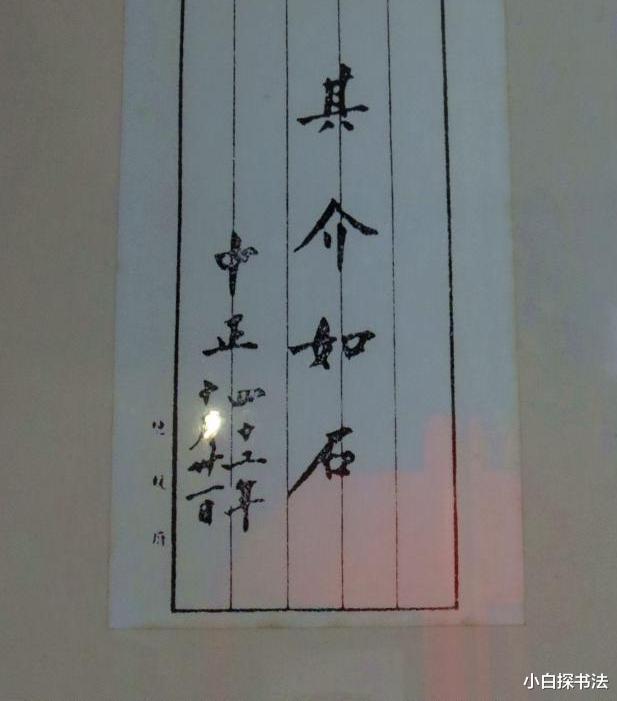 其介如石
中正
四十年
十月廿一日
總統府
小白探书法